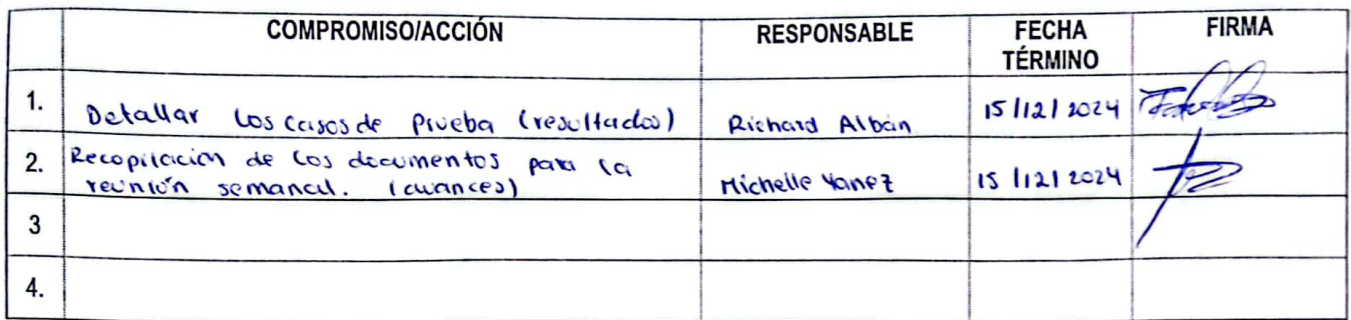 COMPROMISO/ACCIÓN RESPONSABLE FECHA TÉRMINO FIRMA
1. Detallar los casos de Prueba (resultados) Richard Albán 15/12/2024
2. Recopilación de los documentos para la
reunión semanal. (avances) Michelle Yanez 15/12/2024
3
4.